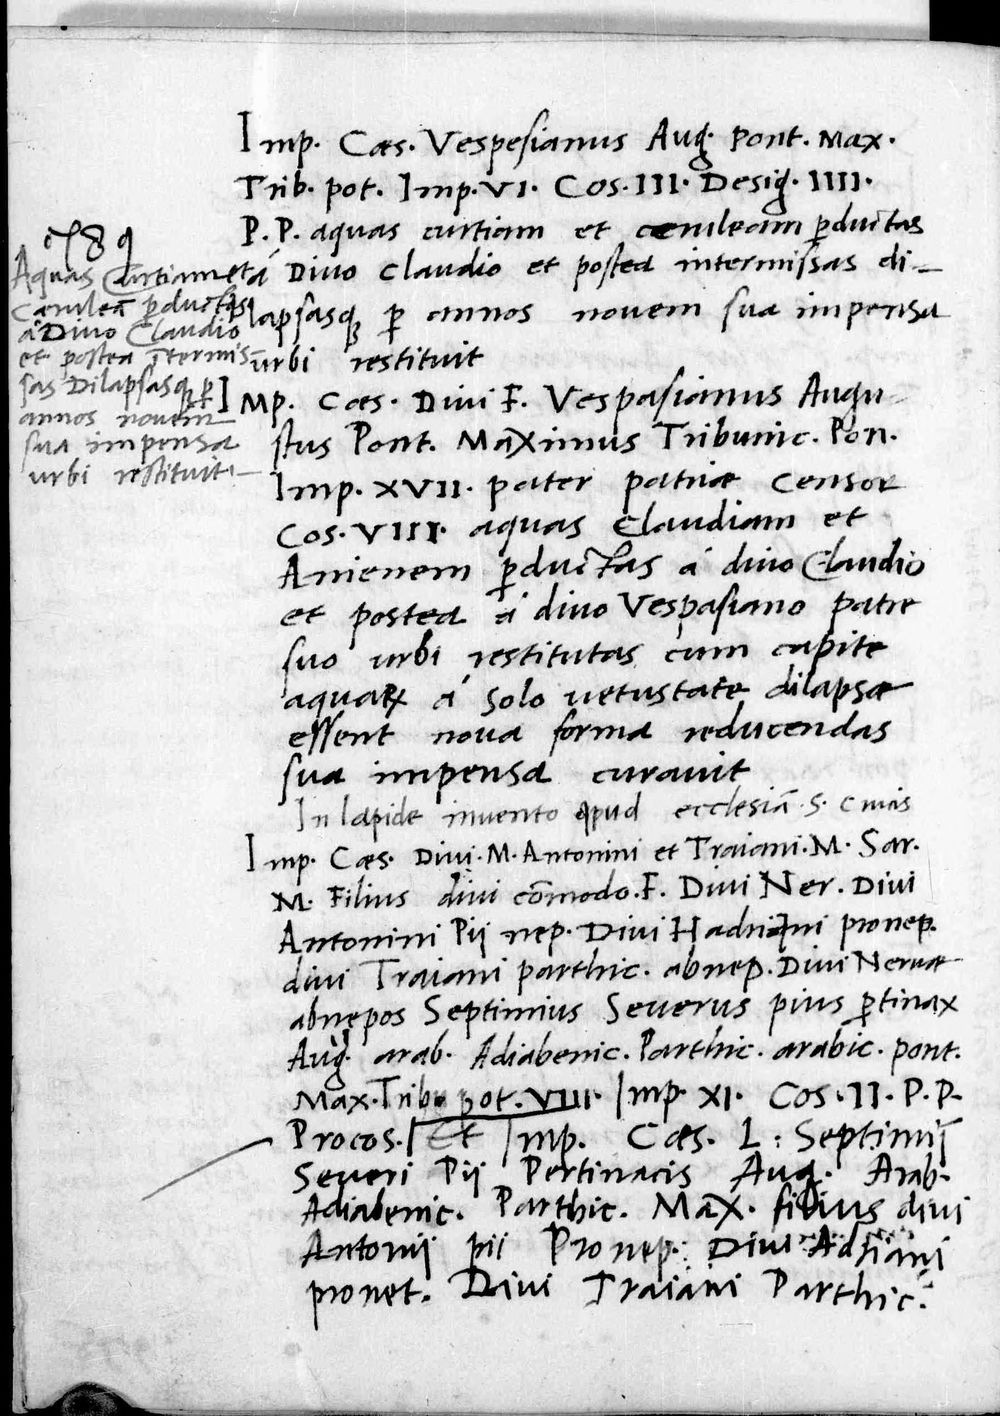 Imp. Cæs. Vespesianus Aug. pont. Max.
Trib. pot. Imp. VI. Cos. III. Desig. IIII.
P. P. aquas curtiam et cæruleam ꝑductas
á Divo Claudio et postea intermissas di-
lapsasqꝫ ꝑ annos novem sua impensa
urbi restituit
789
Aquas Curtiam et
Cæruleā ꝑductas
á Divo Claudio
et postea ītermis
sas Dilapsasqꝫ ꝑ
annos novem
sua impensa
urbi restituit
Imp. Cæs. Divi F. Vespasianus Augu-
stus Pont. Maximus Tribunic. Pon.
Imp. XVII. pater patriæ Censor
Cos. VIII. aquas Claudiam et
Anienem ꝑductas á divo Claudio
et postea á divo Vespasiano patre
suo urbi restitutas cum capite
aquaꝝ á solo vetustate dilapsæ
essent nova forma reducendas
sua impensa curavit
In lapide invento apud ecclesiā S. Crucis
Imp. Cæs. Divi. M. Antonini et Traiani. M. Sar.
M. Filius divi cōmodo. F. Divi Ner. Divi
Antonini Pij nep. Divi Hadriani pronep.
divi Traiani parthic. abnep. Divi Nervæ
abnepos Septimius Severus pius ꝑtinax
Aug. arab. Adiabenic. Parthic. arabic. pont.
Max. Trib. pot. VIII. Imp. XI. Cos. II. P. P.
Procos. Et Imp. Cæs. L: Septimij
Severi Pij Pertinacis Aug. Arab.
Adiabenic. Parthic. Max. filius divi
Antonij pii Pronep: Divi Adriani
pronet. Divi Traiani Parthic: